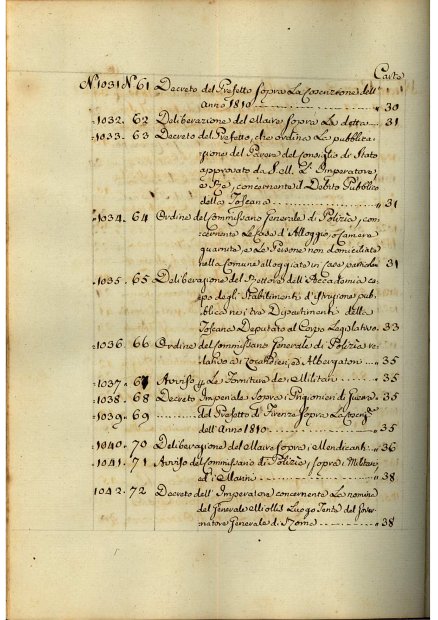 Carte
N° 1031 N° 61 Decreto del Prefetto sopra La Coscrizione dell'
Anno 1810 30
1032. 62 Deliberazione del Maire sopra La detta 31
1033. 63 Decreto del Prefetto, che ordina La pubblica-
zione del Parere del Consiglio di Stato
approvato da S. M. L'Imperatore,
e Re, concernente il Debito Pubblico
della Toscana 31
1034. 64 Ordine del Commissario Generale di Polizia, con-
cernente Le Case d'Alloggio, o Camere
guarnite, e Le Persone non domiciliate
nella Comune alloggiate in Case particolari 31
1035. 65 Deliberazione del Rettore dell'Accademia ca-
po degli Stabilimenti d'Istruzione pub-
blica ne i tre Dipartimenti della
Toscana Deputato al Corpo Legislativo 33
1036. 66 Ordine del Commissario Generale di Polizia re-
lativo a i Locandieri, ed Albergatori 35
1037. 67 Avviso Le Forniture de i Militari 35
1038. 68 Decreto Imperiale sopra i Prigionieri di Guerra 35
1039. 69 del Prefetto di Firenze sopra La
dell'Anno 1810 35
1040. 70 Deliberazione del Maire sopra i Mendicanti 36
1041. 71 Avviso del Commissario di Polizia, sopra i Militari,
ed i Marini 38
1042. 72 Decreto dell'Imperatore concernente La nomina
del Generale Miollis Luogo Tente del Gover-
natore Generale di Roma 38